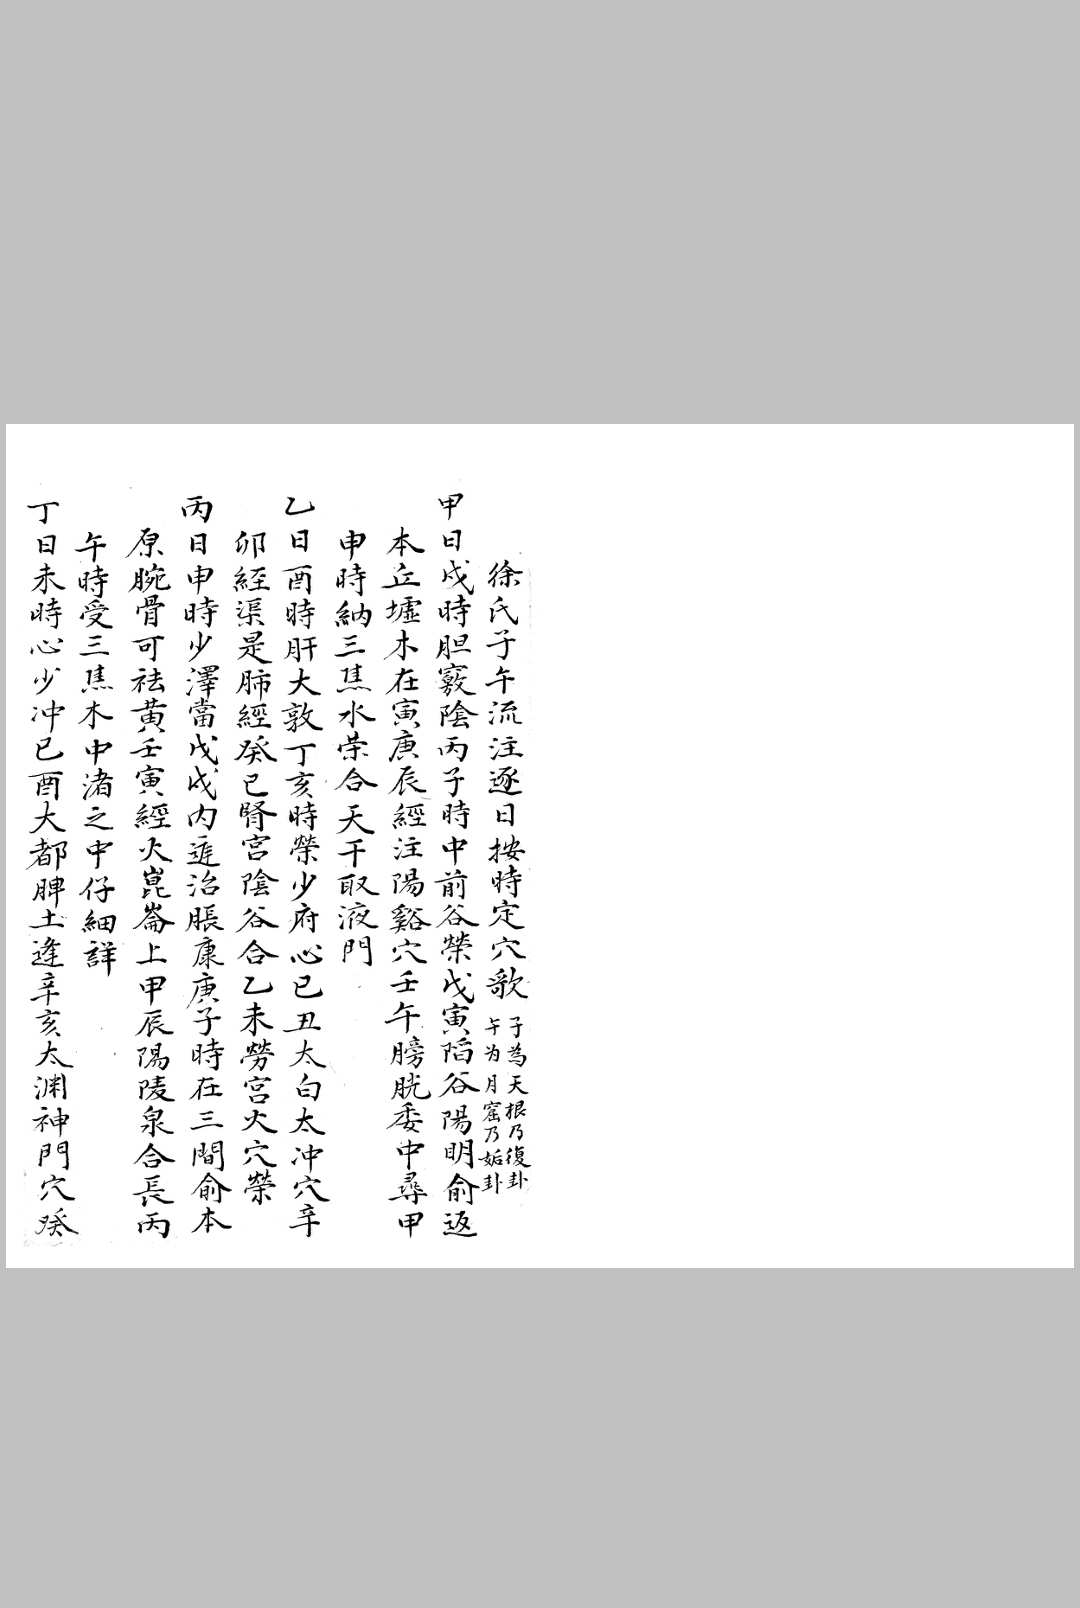 徐氏子午流注逐日按時定穴歌 子為天根乃復卦
午为月窟乃姤卦
甲日戌時胆竅陰丙子時中前谷榮戊寅陷谷陽明俞返
本丘墟木在寅庚辰經注陽谿穴壬午膀胱委中尋甲
申時納三焦水荣合天干取液門
乙日酉時肝大敦丁亥時榮少府心已丑太白太冲穴辛
卯經渠是肺經癸已腎宮陰谷合乙未勞宮火穴榮
丙日申時少澤當戊戌内庭治脹康庚子時在三間俞本
原腕骨可祛黄壬寅經火崑崙上甲辰陽陵泉合長丙
午時受三焦木中渚之中仔細詳
丁日未時心少冲已酉大都脾土逢辛亥太渊神門穴癸